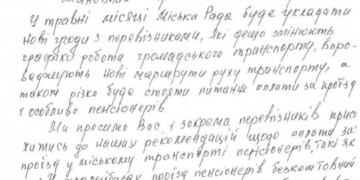 У травні місяці Міська Рада буде укладати
нові угоди з перевізниками, які дещо змінюють
графіко робота громадського транспорту, впро-
ваджують нові маршрути руху транспорту, а
також різко буде стояти питання оплати за проїзд
особливо пенсіонерів.
Ми просимо Вас, і зокрема перевізників прис
хитись до наших рекомендацій щодо оплати за
проїзд у міському транспорті пенсіонерів, такі як
проїзд пенсіонерів безкоштовний